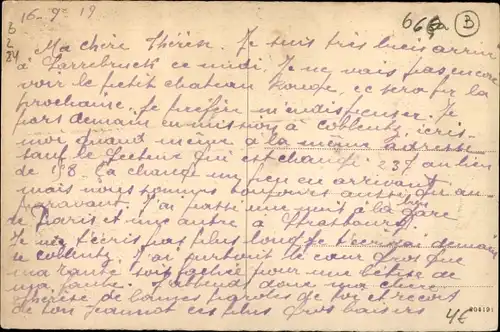 16 - 9e 19
668a B
3
2
84
Ma chère Thérèse. Je suis très bien arrivé
à Sarrebruck ce midi. Je ne vais pas encore
voir le petit chateau rouge, ce sera pr la
prochaine. Je préfère m'en dispenser. Je
pars demain en mission à Coblentz, écris-
moi quand même à la même adresse
sauf le secteur qui est changé 237 au lieu
de 198. Ça change un peu en arrivant
mais nous sommes toujours aussi qu'au
paravant. J'ai passé une nuit à la gare
de Paris et une autre à Strasbourg.
Je ne t'écris pas plus long je t'écrirai demain
de Coblentz. J'ai partout le cœur gros que
ma soit pour une bêtise de
ma faute. J'attends donc ma chère
Thérèse de bonnes paroles de toi et reçois
de ton Jeannot ces plus gros baisers
4€